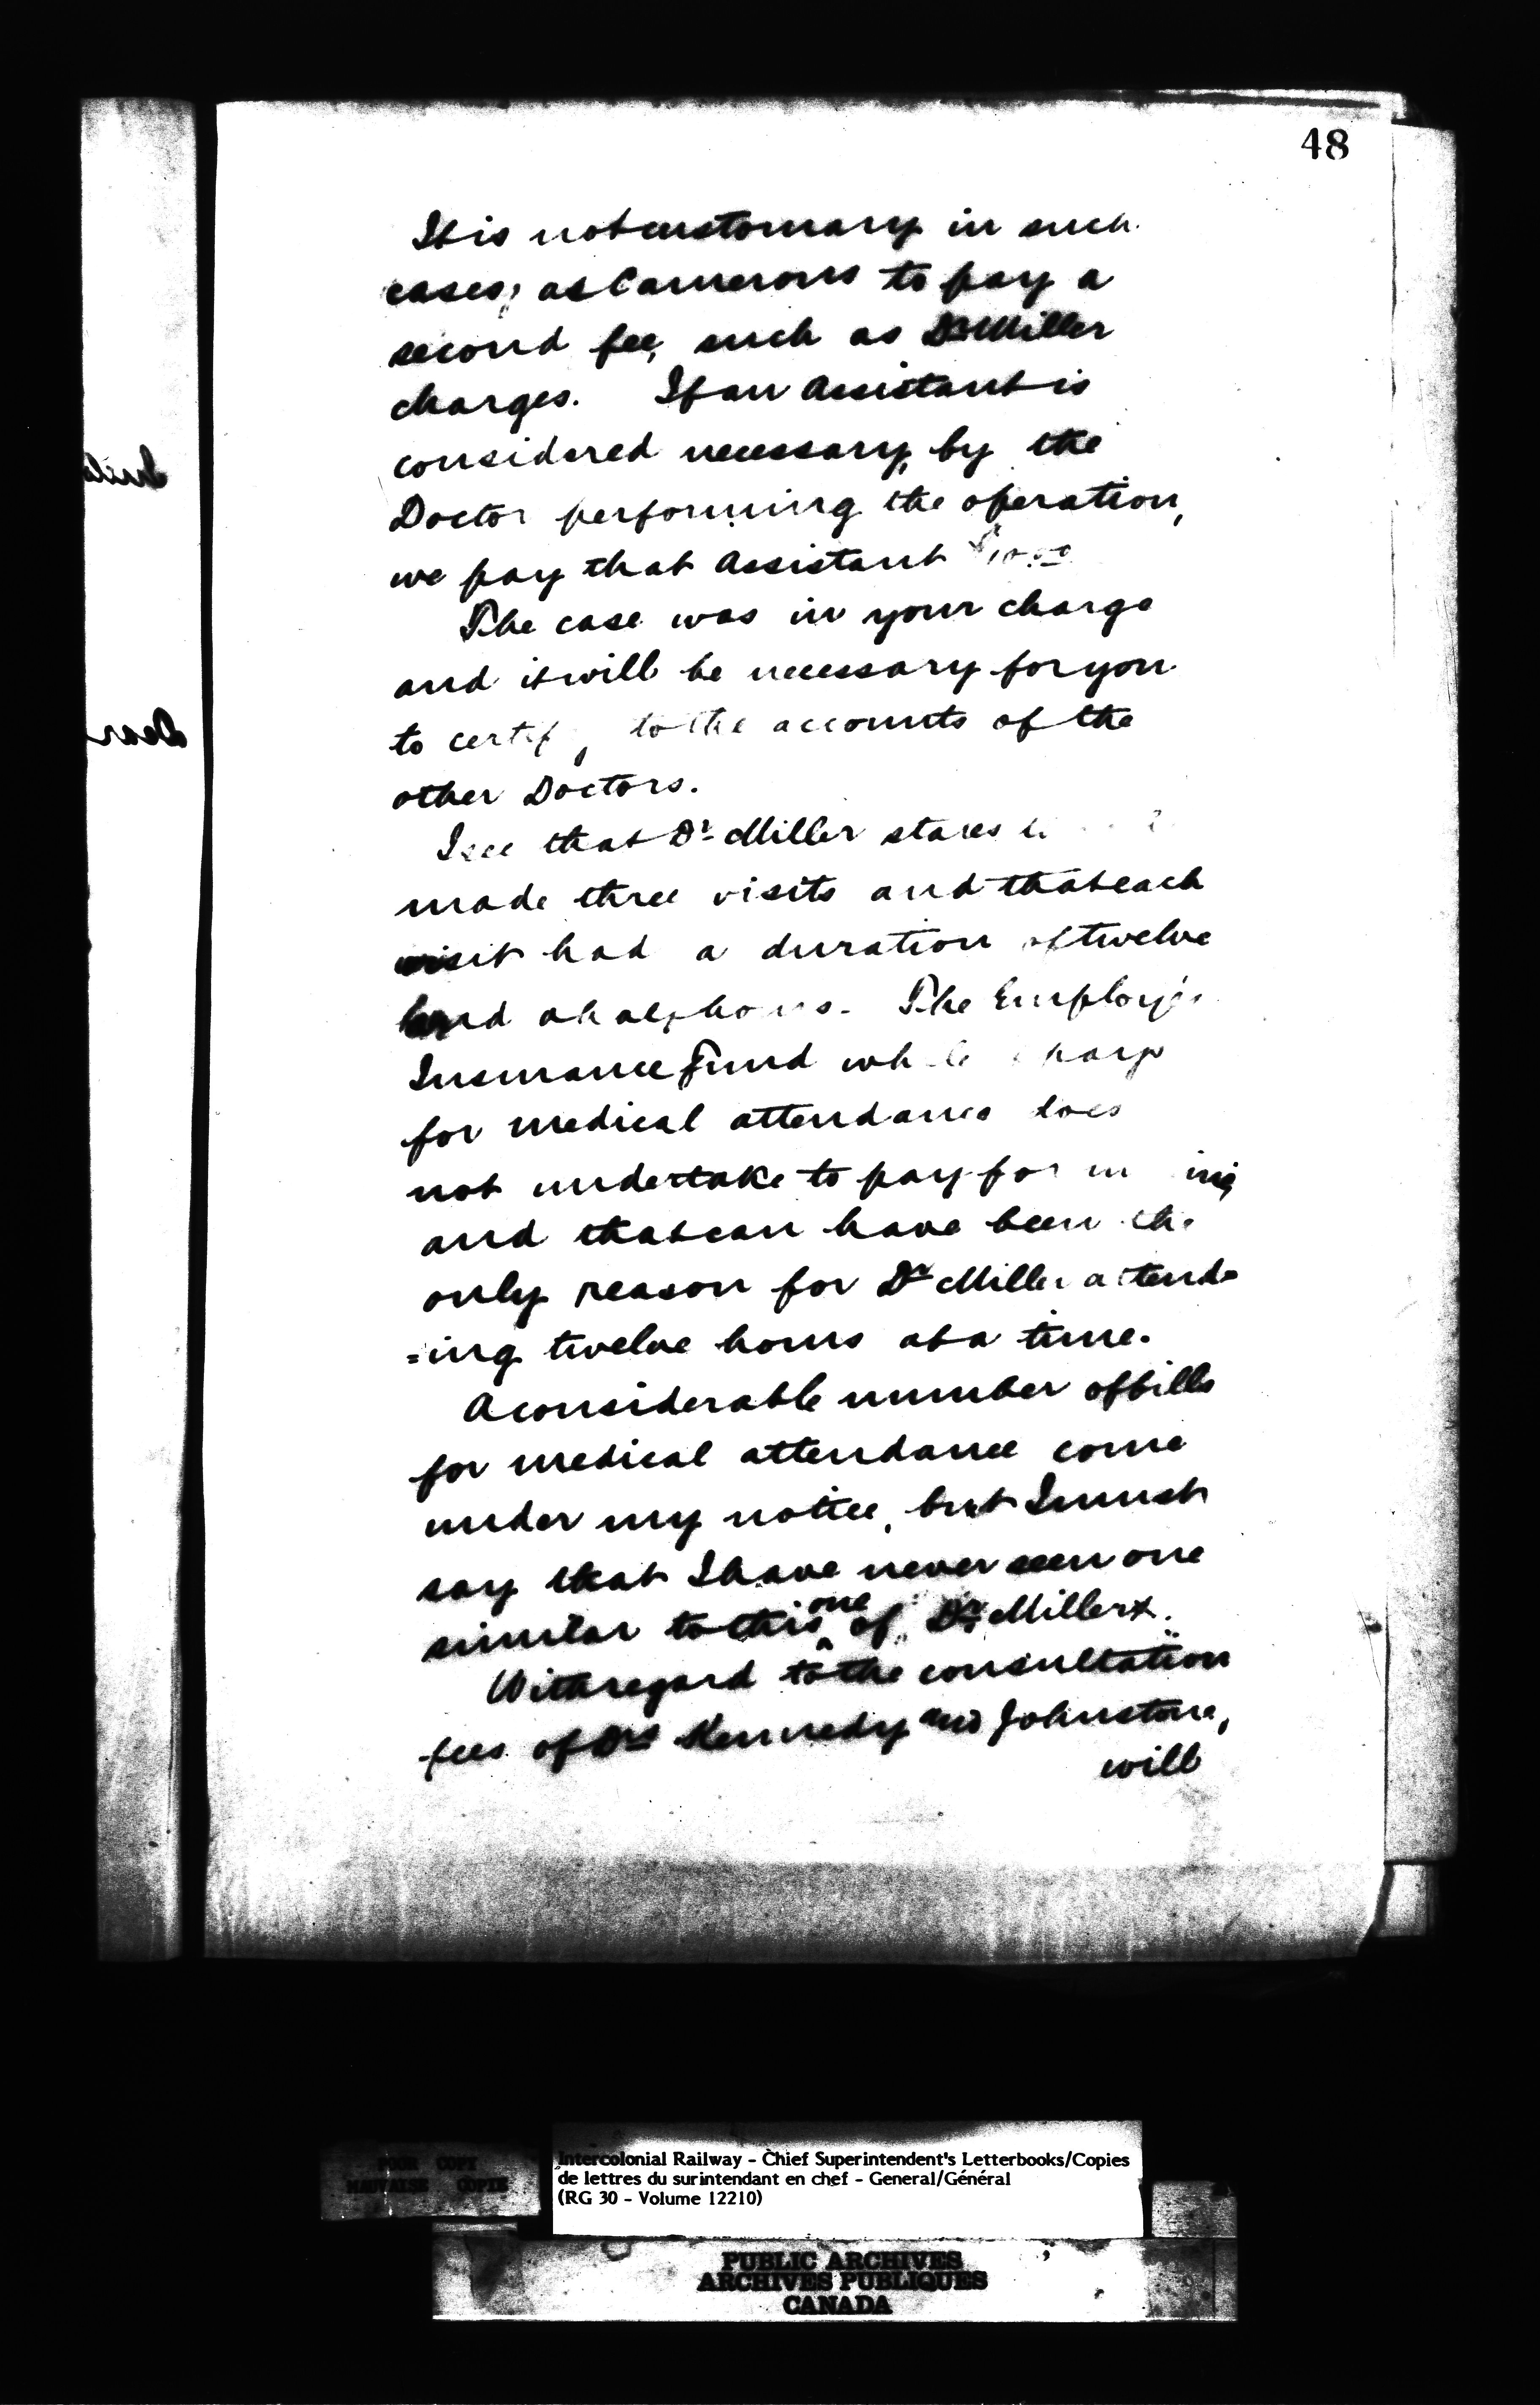 48
It is not customary in such
cases, as Camerons to pay a
second fee, such as Dr Miller
charges. If an Assistant is
considered necessary, by the
Doctor performing the operation,
we pay that Assistant
The case was in your charge
and it will be necessary for you
to certify to the accounts of the
other Doctors.
I see that Dr Miller states
made three visits and that each
visit had a duration of twelve
and a half hours. The Employés
Insurance Fund
for medical attendance does
not undertake to pay for
and that can have been the
only reason for Dr Miller attend-
=ing twelve hours at a time.
A considerable number of bills
for medical attendance come
under my notice, but I must
say that I have never seen one
similar to this one of Dr Millers.
With regard to the consultation
fees of Drs Kennedy and Johnstone,
will
Dear
POOR COPY
MAUVAISE COPIE
Intercolonial Railway - Chief Superintendent's Letterbooks/Copies
de lettres du surintendant en chef - General/Général
(RG 30 - Volume 12210)
PUBLIC ARCHIVES
ARCHIVES PUBLIQUES
CANADA